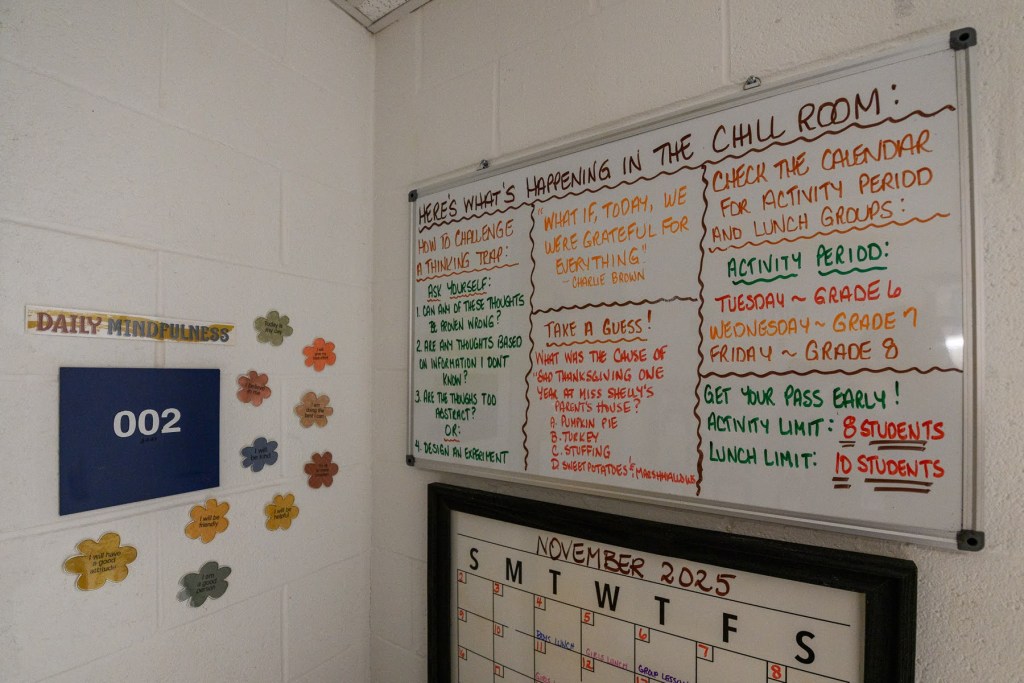 DAILY MINDFULNESS
002
I will be
friendly
I will be
helpful
I will have
a good
attitude
HERE'S WHAT'S HAPPENING IN THE CHILL ROOM:
HOW TO CHALLENGE
A THINKING TRAP:
ASK YOURSELF:
1. CAN ANY OF THESE THOUGHTS
BE PROVEN WRONG?
2. ARE ANY THOUGHTS BASED
ON INFORMATION I DON'T
KNOW?
3. ARE THE THOUGHS TOO
ABSTRACT?
OR:
4. DESIGN AN EXPERIMENT
"WHAT IF, TODAY, WE
WERE GRATEFUL FOR
EVERYTHING"
- CHARLIE BROWN
TAKE A GUESS!
WHAT WAS THE CAUSE OF
THANKSGIVING ONE
YEAR AT MISS SHELLY'S
PARENT'S HOUSE?
A. PUMPKIN PIE
B. TURKEY
C. STUFFING
D. SWEET POTATOES & MARSHMALLOWS
CHECK THE CALENDAR
FOR ACTIVITY PERIOD
AND LUNCH GROUPS:
ACTIVITY PERIOD:
TUESDAY ~ GRADE 6
WEDNESDAY ~ GRADE 7
FRIDAY ~ GRADE 8
GET YOUR PASS EARLY!
ACTIVITY LIMIT: 8 STUDENTS
LUNCH LIMIT: 10 STUDENTS
NOVEMBER 2025
S M T W T F S
2 3 4 5 6 7 8
BOYS LUNCH GIRLS LUNCH GROUP LESSON
9 10 11 12